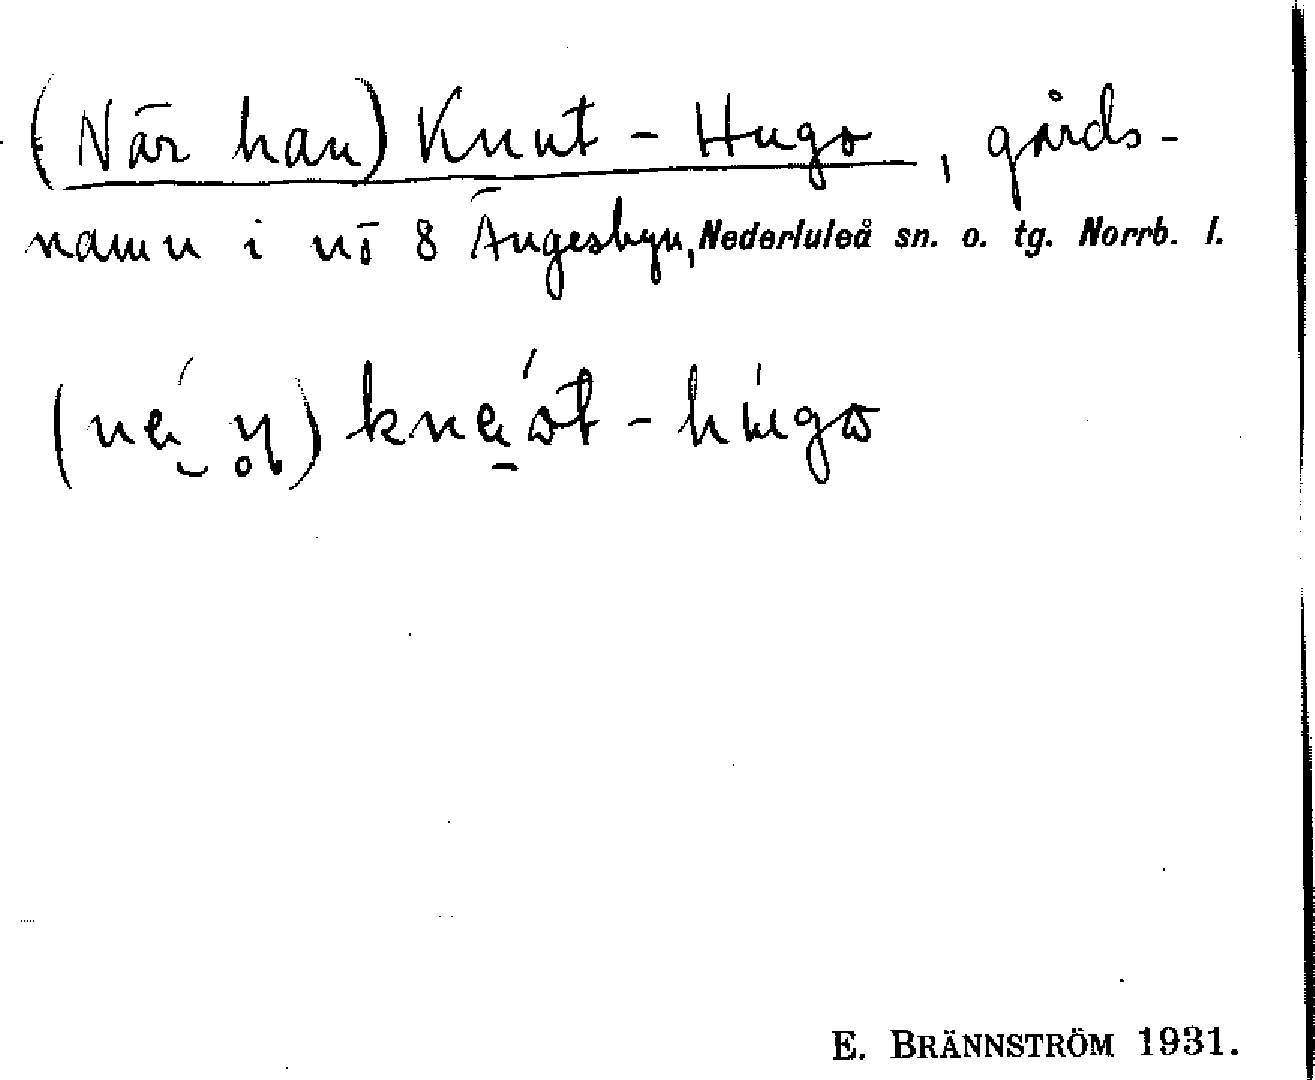 (När han) Knut-Hugo, gårds-
namn i nö 8 Ängesbyn, Nederluleå sn. o. tg. Norrb. l.
E. BRÄNNSTRÖM 1931.